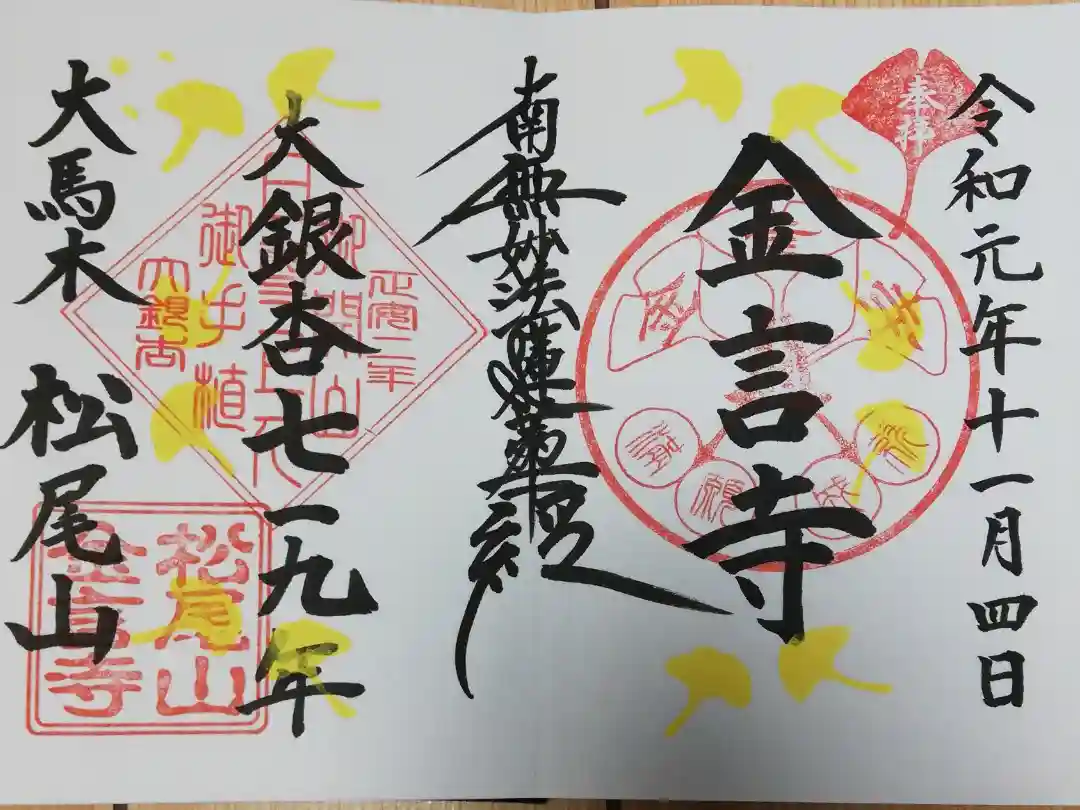 令和元年十一月四日
奉拝
金言寺
南無妙法蓮華経
大銀杏七一九年
正安二年
御手植
大銀杏
大馬木 松尾山
松尾山
金言寺